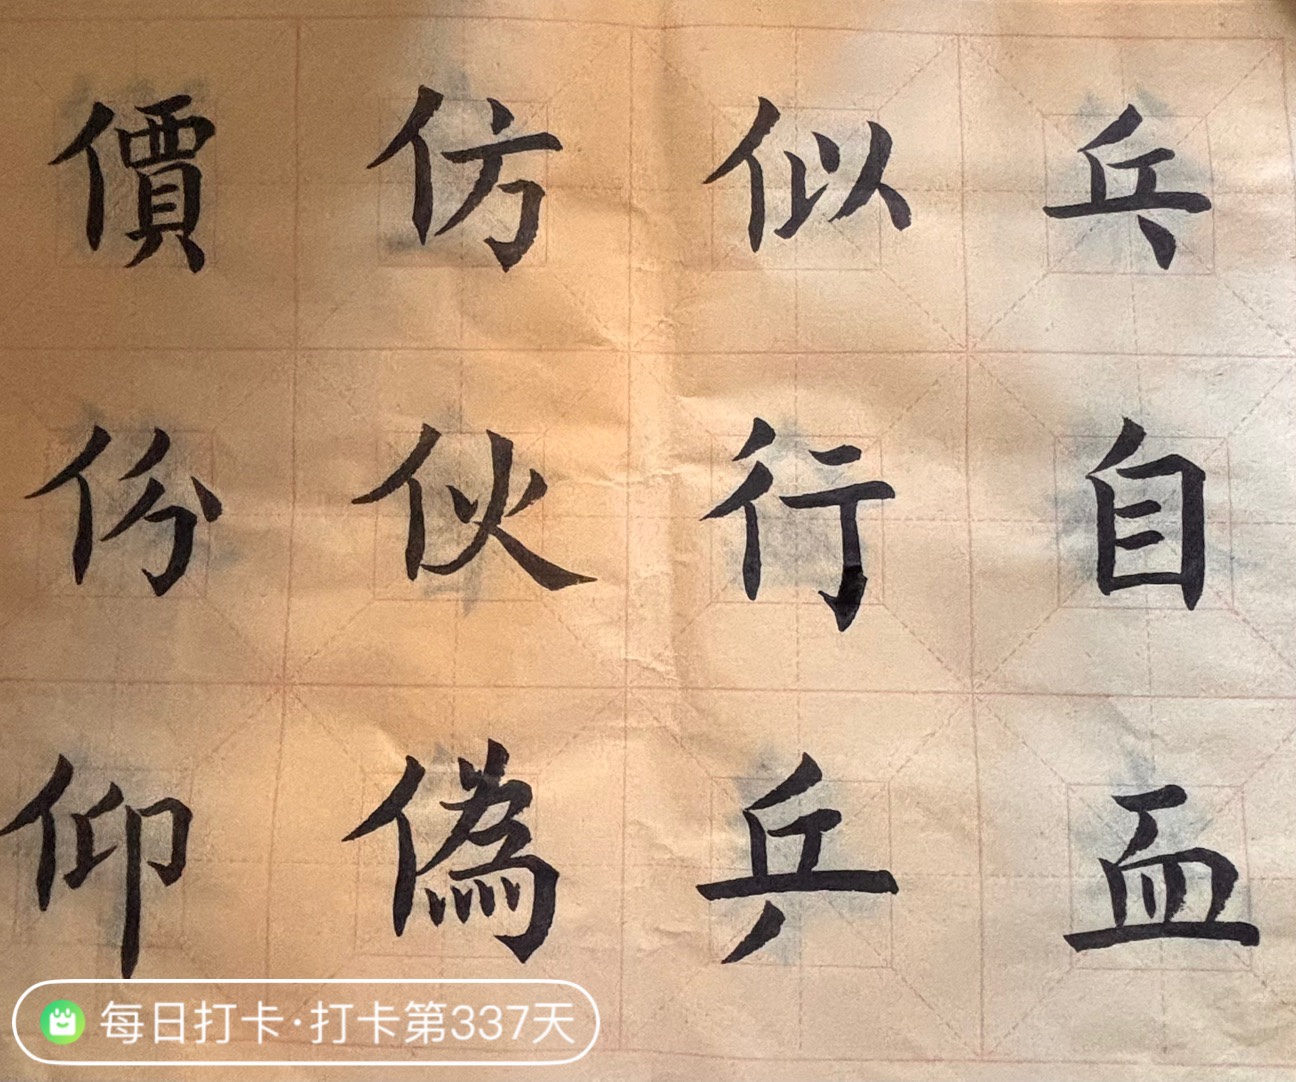 價份仰
仿伙偽
似行乒
乓自血
每日打卡·打卡第337天